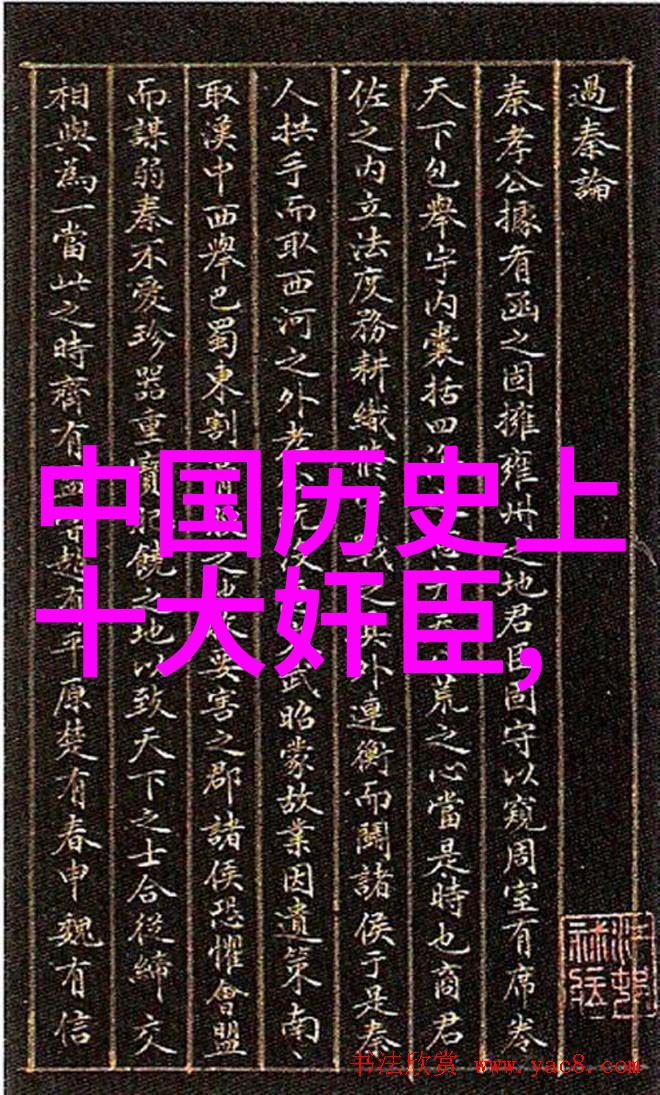 過秦論
秦孝公據肴函之固擁雍州之地君臣固守以窺周室有席卷
天下包舉宇内囊括四荒之心當是時也商君
佐之内立法度務耕織外連衡而鬭諸侯于是秦
人拱手而取西河之外武昭蒙故業因遺策南
取漢中西舉巴蜀東割之地要害之郡諸侯恐懼會盟
而謀弱秦不愛珍器重寶饒之地以致天下之士合從締交
相與為一當此之時齊有平原楚有春申魏有信
中国历史上
十大奸臣,
书法欣赏 www.yac8.com